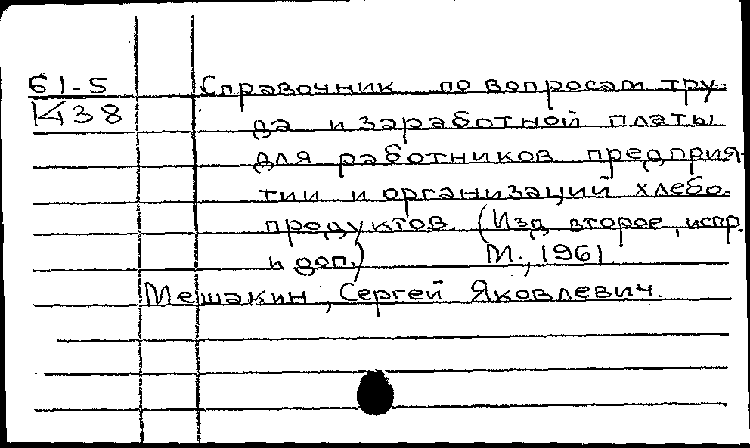 61-5 Справочник по вопросам тру-
К438 да и заработной платы
для работников предприя-
тии и организаций хлебо-
продуктов. (Изд. второе, испр.
и доп.) М., 1961
Мешакин, Сергей Яковлевич.